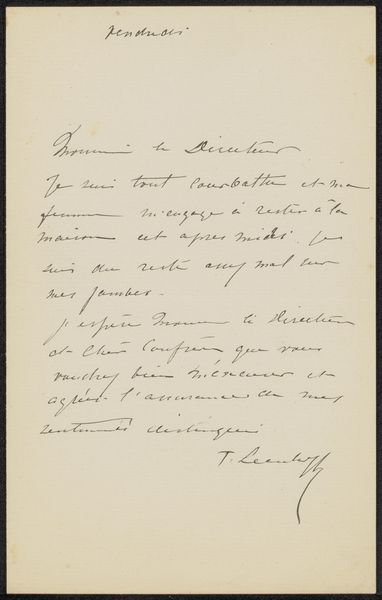 vendredi
Monsieur le Directeur
Je suis tout courbattu et ma
femme m'engage à rester à la
maison cet après midi. Je
suis du reste assez mal sur
mes jambes.
J'espère Monsieur le Directeur
et Cher Confrère que vous
voudrez bien m'excuser et
agréer l'assurance de mes
sentiments distingués
F. Leenhoff